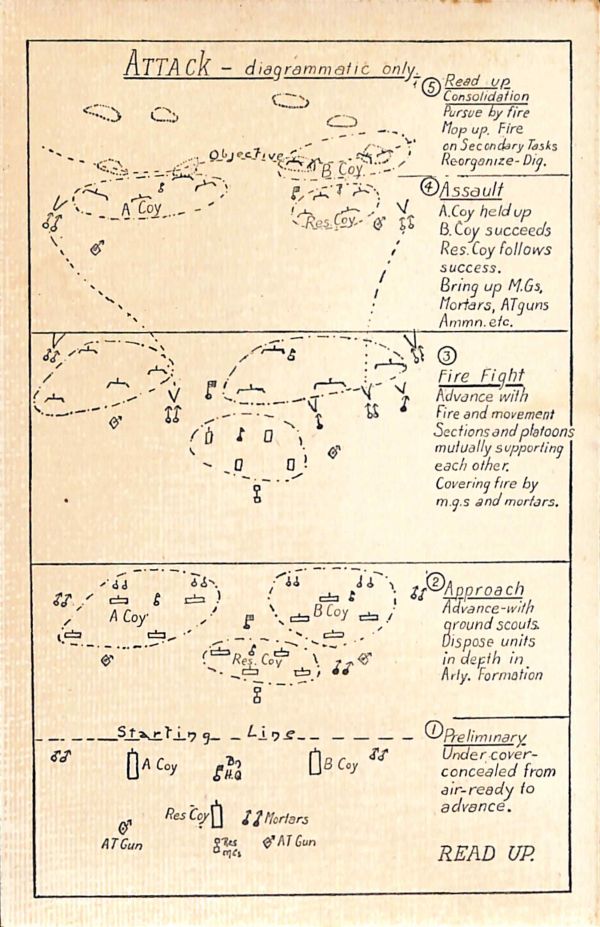 ATTACK – diagrammatic only.
⑤ Read up
Consolidation
Pursue by fire
Mop up. Fire
on Secondary Tasks
Reorganize - Dig.
Objective
B Coy
A Coy
Res. Coy
④ Assault
A. Coy held up
B. Coy succeeds
Res. Coy follows
success.
Bring up M.Gs,
Mortars, AT guns
Ammn. etc.
③
Fire Fight
Advance with
Fire and movement
Sections and platoons
mutually supporting
each other.
Covering fire by
m.g.s and mortars.
② Approach
Advance-with
ground scouts.
Dispose units
in depth in
Arty. Formation
A Coy
B Coy
Res. Coy
Starting Line
① Preliminary
Under cover-
concealed from
air-ready to
advance.
A Coy
Bn
H.Q
B Coy
Res Coy
Mortars
AT Gun
Res
MGs
AT Gun
READ UP.